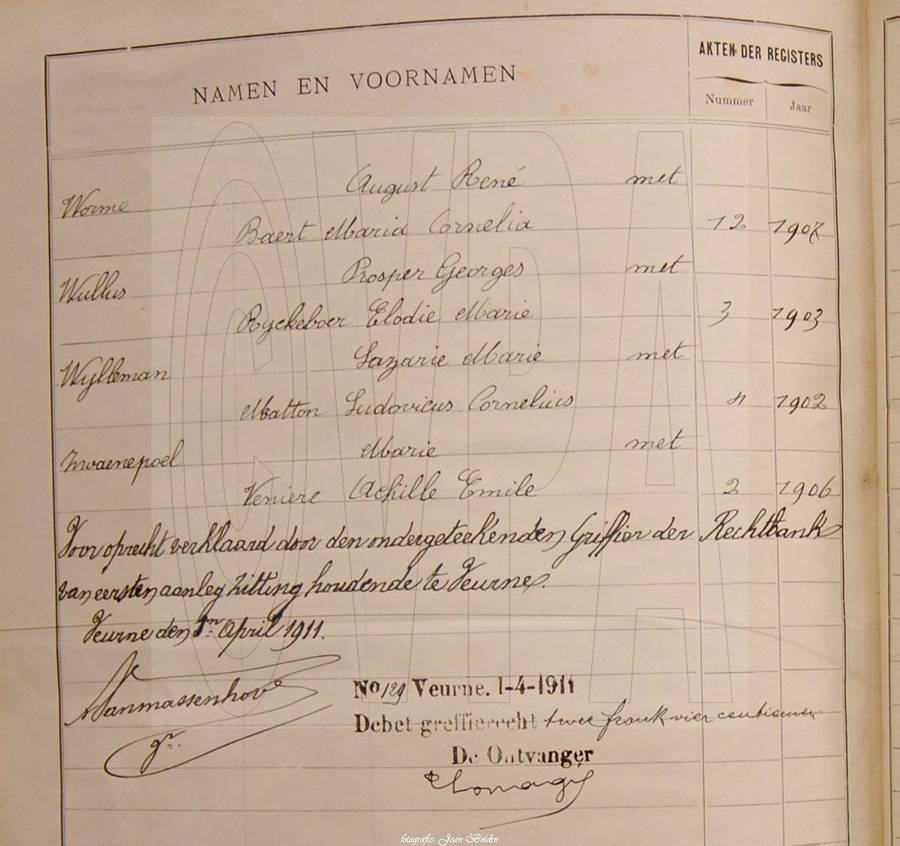 NAMEN EN VOORNAMEN
AKTEN DER REGISTERS
Nummer Jaar
Worme August René met
Baert Maria Cornelia 12 1907
Wullus Prosper Georges met
Ryckeboer Elodie Marie 3 1903
Wylleman Lazarie Marie met
Matton Ludovicus Cornelius 4 1902
Zwaenepoel Marie met
Veniere Achille Emile 2 1906
Voor oprecht verklaard door den ondergeteekenden Griffier der Rechtbank
van eersten aanleg zitting houdende te Veurne.
Veurne den 1n April 1911.
Vanmassenhove
gr.
No 129 Veurne. 1-4-1911
Debet greffierecht twee frank vier centiemen
De Ontvanger
fotografie: Jean Beidin
CVDA